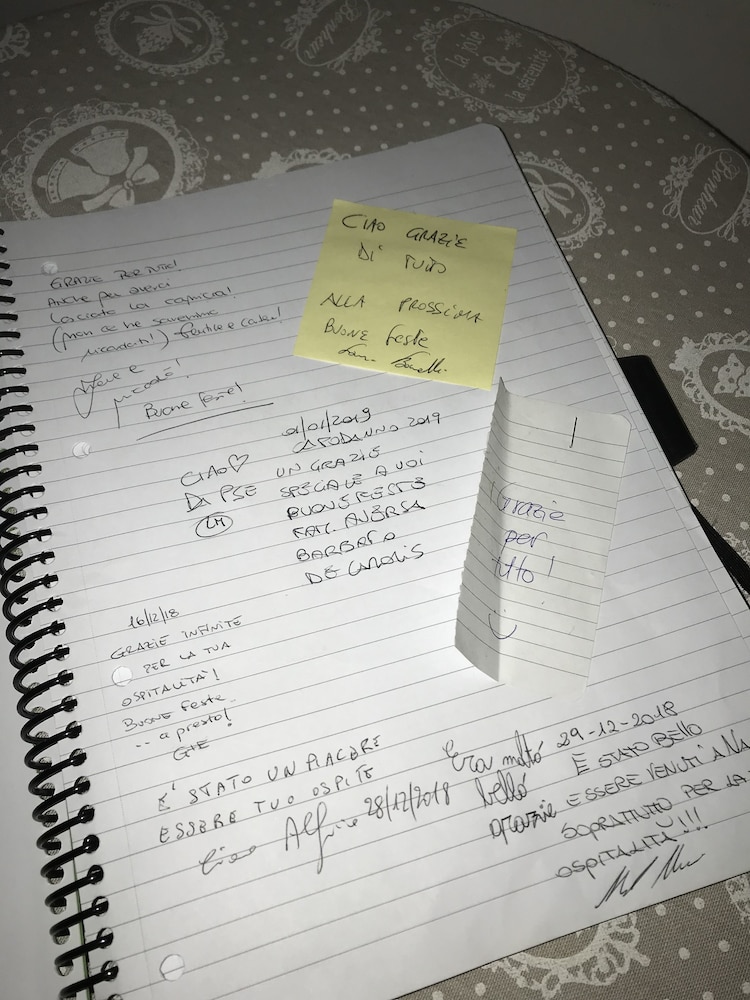 Bonheur
la joie
&
la sérénité
Bonheur
GRAZIE PER TUTTO!
Anche per averci
lasciato la
(non ce ne saremmo
felice e
Buone feste!
CIAO GRAZIE
DI TUTTO
ALLA PROSSIMA
BUONE feste
01/01/2019
CAPODANNO 2019
CIAO♡ UN GRAZIE
DA PSE SPECIALE A VOI
LM BUONE FESTE
FAM. ANERSA
BARBARO
DE CAROLIS
Grazie
per
tutto!
16/12/18
GRAZIE INFINITE
PER LA TUA
OSPITALITÀ!
BUONE feste
... a presto!
GIE
E' STATO UN PIACERE
ESSERE TUO OSPITE
28/12/2018
Era molto
bello
grazie
29-12-2018
E STATO BELLO
ESSERE VENUTI
SOPRATTUTO PER LA
OSPITALITÀ!!!